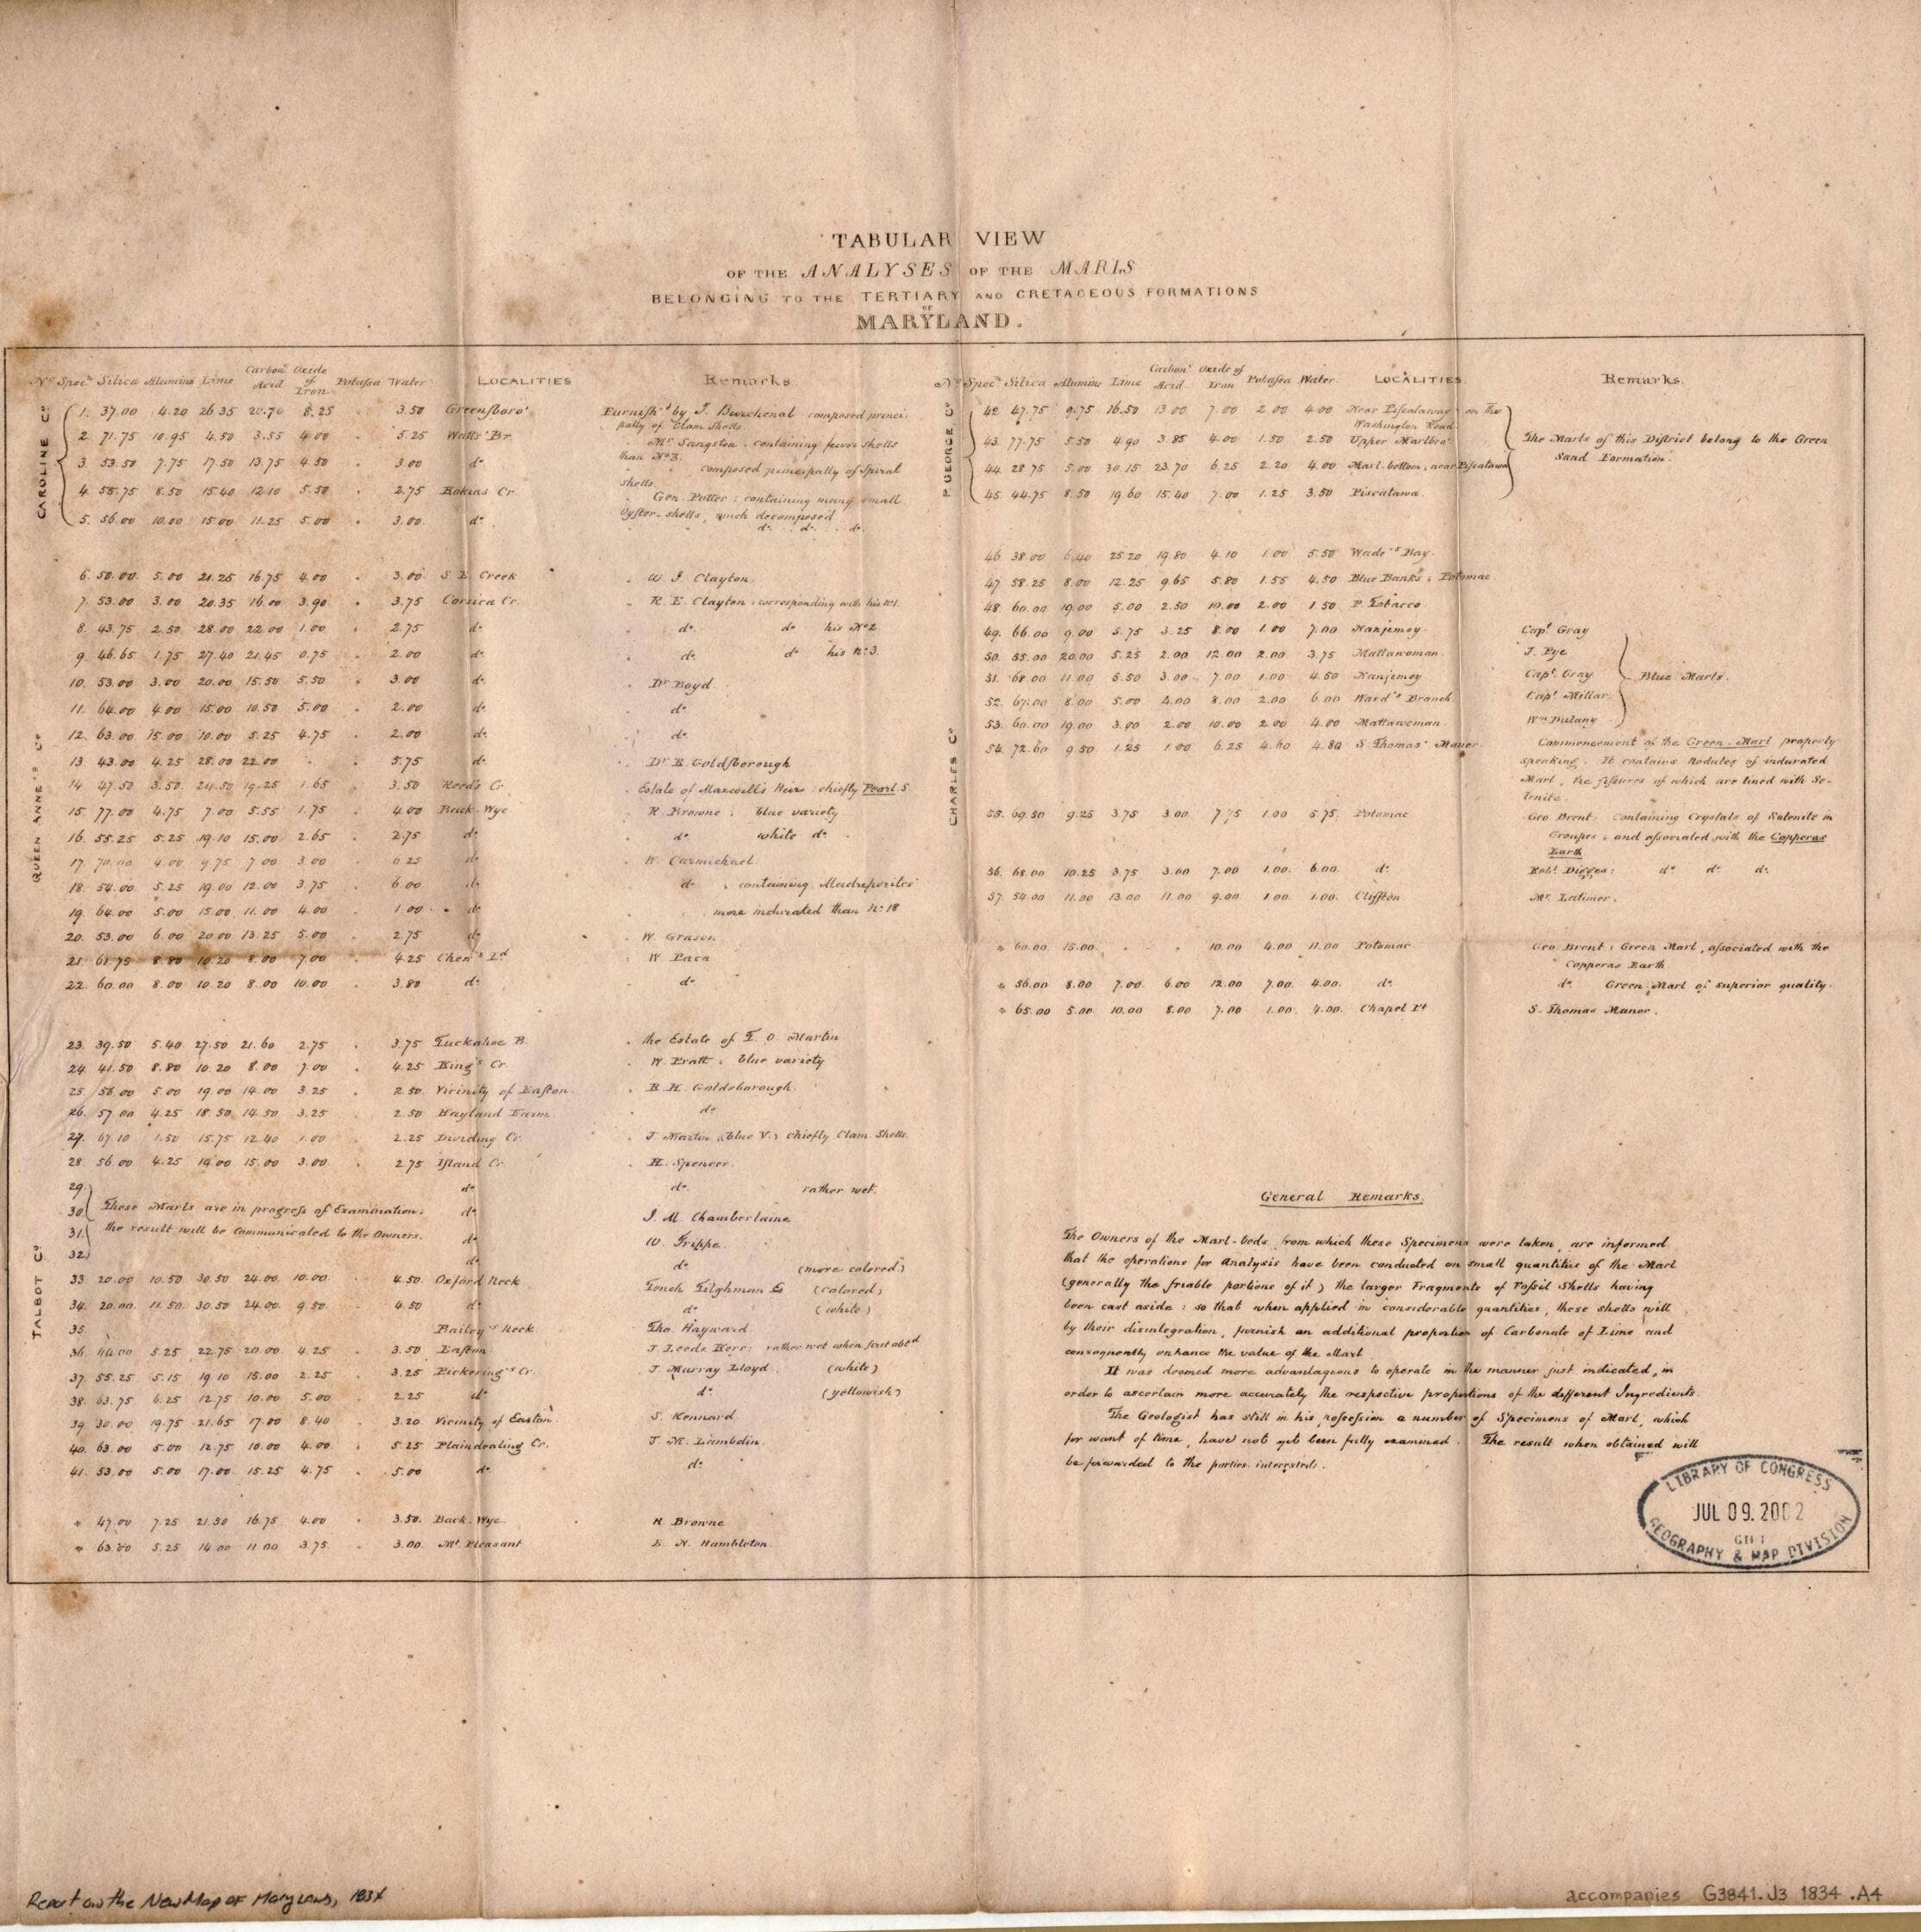 TABULAR VIEW
OF THE ANALYSES OF THE MARLS
BELONGING TO THE TERTIARY AND CRETACEOUS FORMATIONS
OF
MARYLAND.
Nº Specⁿ Silica Alumina Lime Carbonᶜ Acid Oxide of Iron Potassa Water LOCALITIES Remarks
CAROLINE Cº
1. 37.00 4.20 26.35 20.70 8.25 3.50 Greensboro' Furnish'd by J. Burchenal composed princi-
pally of Clam shells
2. 71.75 10.95 4.50 3.55 4.00 . 5.25 Watts' Br. . Mr Sangston : containing fewer shells
than Nº 3.
3. 53.50 7.75 17.50 13.75 4.50 3.00 dº . . composed principally of Spiral
shells.
4. 55.75 8.50 15.40 12.10 5.50 . 2.75 Hokias Cr. . Gen. Potter : containing many small
Oyster-shells, much decomposed
5. 56.00 10.00 15.00 11.25 5.00 . 3.00. dº . dº . dº . . dº.
QUEEN ANNE'S Cº
6. 50.00 5.00 21.25 16.75 4.00 . 3.00 S E Creek . W. J. Clayton.
7. 53.00 3.00 20.35 16.00 3.90 . 3.75 Corsica Cr. . R. E. Clayton : corresponding with his Nº1
8. 43.75 2.50 28.00 22.00 1.00 . 2.75 dº . dº dº his Nº2
9. 46.65 1.75 27.40 21.45 0.75 . 2.00 dº . dº dº his Nº3.
10. 53.00 3.00 20.00 15.50 5.50 . 3.00 dº . Dr Boyd.
11. 64.00 4.00 15.00 10.50 5.00 . 2.00 dº . dº
12. 63.00 15.00 10.00 5.25 4.75 . 2.00 dº . dº
13 43.00 4.25 28.00 22.00 . . 5.75 dº . Dr R. Goldsborough
14 47.50 3.50 24.50 19.25 1.65 . 3.50 Reed's Cr. . Estate of Maxwell's Heirs : chiefly Pearl S
15. 77.00 4.75 7.00 5.55 1.75 . 4.00 Back Wye . R. Browne : blue variety
16. 55.25 5.25 19.10 15.00 2.65 . 2.75 dº . dº white dº .
17. 70.00 4.00 9.75 7.00 3.00 . 6.25 dº . W. Carmichael
18. 54.00 5.25 19.00 12.00 3.75 . 6.00 dº dº : containing Madreporites
19. 64.00 5.00 15.00 11.00 4.00 . 1.00 . dº more indurated than Nº 18
20. 53.00 6.00 20.00 13.25 5.00 . 2.75 dº . W. Grason
21 61.75 8.80 10.20 8.00 7.00 . 4.25 Chen's Id . W. Paca
22. 60.00 8.00 10.20 8.00 10.00 . 3.80 dº . dº
TALBOT Cº
23. 39.50 5.40 27.50 21.60 2.75 . 3.75 Tuckahoe B. . the Estate of T. O. Martin
24. 41.50 8.80 10.20 8.00 7.00 . 4.25 King's Cr. . W. Pratt : blue variety
25 56.00 5.00 19.00 14.00 3.25 . 2.50. Vicinity of Easton. . B. H. Goldsborough.
26. 57.00 4.25 18.50 14.50 3.25 . 2.50 Hayland Farm dº
27. 67.10 1.50 15.75 12.40 1.00 . 2.25 Dividing Cr. . J. Martin (blue V.) chiefly Clam Shells.
28. 56.00 4.25 19.00 15.00 3.00. . 2.75 Island Cr. . H. Spencer.
29. dº . dº rather wet.
30 These Marls are in progress of Examination: dº J. M. Chamberlaine
31. the result will be Communicated to the Owners. dº W. Trippe
32. dº dº (more colored)
33 20.00 10.50 30.50 24.00 10.00 . 4.50 Oxford Neck Tench Tilghman E (colored)
34. 20.00. 11.50. 30.50 24.00. 9.50 . 4.50 dº dº (white)
35. Bailey's Neck Tho. Hayward
36. 44.00 5.25 22.75 20.00 4.25 . 3.50 Easton J. Leeds Kerr : rather wet when first obtd
37. 55.25 5.15 19.10 15.00 2.25 . 3.25 Pickering's Cr. J. Murray Lloyd (white)
38. 63.75 6.25 12.75 10.00 5.00 . 2.25 dº dº (yellowish)
39 30.00 19.75 21.65 17.00 8.40 . 3.20 Vicinity of Easton. S. Kennard
40. 63.00 5.00 12.75 10.00 4.00. . 5.25 Plaindealing Cr. J. M. Lambdin.
41. 53.00 5.00 17.00 15.25 4.75 . 5.00 dº dº
* 47.00 7.25 21.50 16.75 4.00 . 3.50. Back Wye. R Browne
* 63.00 5.25 14.00 11.00 3.75 . 3.00 Mt Pleasant E. N. Hambleton.
Nº Specⁿ Silica Alumine Lime Carbonᶜ Acid. Oxide of Iron Potassa Water. LOCALITIES Remarks
P. GEORGE Cº
42 47.75 9.75 16.50 13.00 7.00 2.00 4.00 Near Piscataway on the
Washington Road
43. 77.75 5.50 4.90 3.85 4.00 1.50 2.50 Upper Marlbro' The Marls of this District belong to the Green
Sand Formation.
44. 28.75 5.00 30.15 23.70 6.25 2.20 4.00 Marl-bottom, near Piscatawa
45. 44.75 8.50 19.60 15.40 7.00 1.25 3.50 Piscatawa.
CHARLES Cº
46 38.00 6.40 25.20 19.80 4.10 1.00 5.50 Wade's Bay.
47. 58.25 8.00 12.25 9.65 5.80 1.55 4.50 Blue Banks : Potomac
48 60.00 19.00 5.00 2.50 10.00 2.00 1.50 P. Tobacco
49. 66.00 9.00 5.75 3.25 8.00 1.00 7.00 Nanjemoy. Capt Gray
50. 55.00 20.00 5.25 2.00 12.00 2.00 3.75 Mattawoman. J. Pye
51. 68.00 11.00 5.50 3.00 7.00 1.00 4.50 Nanjemoy Capt Gray Blue Marls.
52. 67.00 8.00 5.00 4.00 8.00 2.00 6.00 Ward's Branch Capt Millar.
53. 60.00 19.00 3.00 2.00 10.00 2.00 4.00 Mattawoman. Wm Dulany
54. 72.60 9.50 1.25 1.00 6.25 4.60 4.80 S. Thomas' Manor. Commencement of the Green-Marl property
speaking. It contains Nodules of indurated
Marl, the fissures of which are lined with Se-
lenite.
55. 69.50 9.25 3.75 3.00 7.75 1.00 5.75. Potomac Geo Brent: Containing Crystals of Selenite in
Groupes ; and associated with the Copperas
Earth
56. 68.00 10.25 3.75 3.00 7.00 1.00. 6.00. dº Robt Digges: dº dº dº.
57. 54.00 11.00 13.00 11.00 9.00 1.00 1.00. Cliffton. Mr Latimer.
* 60.00. 15.00. . . 10.00 4.00 11.00 Potomac Geo. Brent : Green Marl, associated with the
Copperas Earth
* 56.00 8.00 7.00. 6.00 12.00 7.00 4.00. dº dº Green Marl of superior quality.
* 65.00 5.00 10.00 8.00 7.00 1.00 4.00. Chapel Pt S. Thomas Manor.
General Remarks.
The Owners of the Marl-beds, from which these Specimens were taken, are informed
that the operations for Analysis have been conducted on small quantities of the Marl
(generally the friable portions of it) the larger Fragments of Fossil Shells having
been cast aside : so that when applied in considerable quantities, these shells will
by their disintegration, furnish an additional proportion of Carbonate of Lime and
consequently enhance the value of the Marl.
It was deemed more advantageous to operate in the manner just indicated, in
order to ascertain more accurately the respective proportions of the different Ingredients.
The Geologist has still in his possession a number of Specimens of Marl, which
for want of time, have not yet been fully examined. The result when obtained will
be forwarded to the parties interested.
LIBRARY OF CONGRESS
JUL 09. 2002
GIFT
GEOGRAPHY & MAP DIVISION
Report on the New Map of Maryland, 1834
accompanies G3841.J3 1834 .A4